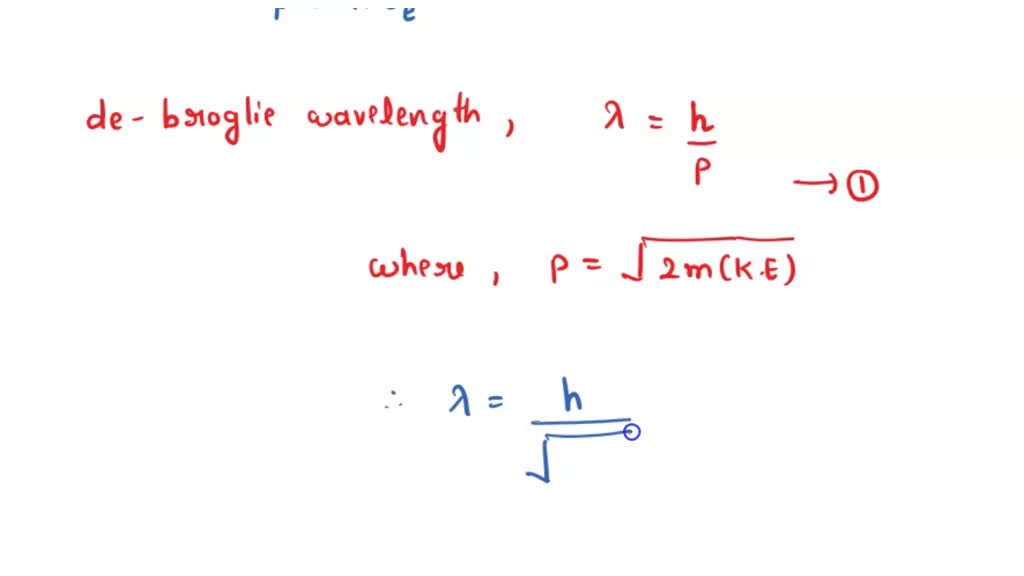 de-broglie wavelength, λ = h/p
→ ①
where, p = √2m(K.E)
∴ λ = h/√